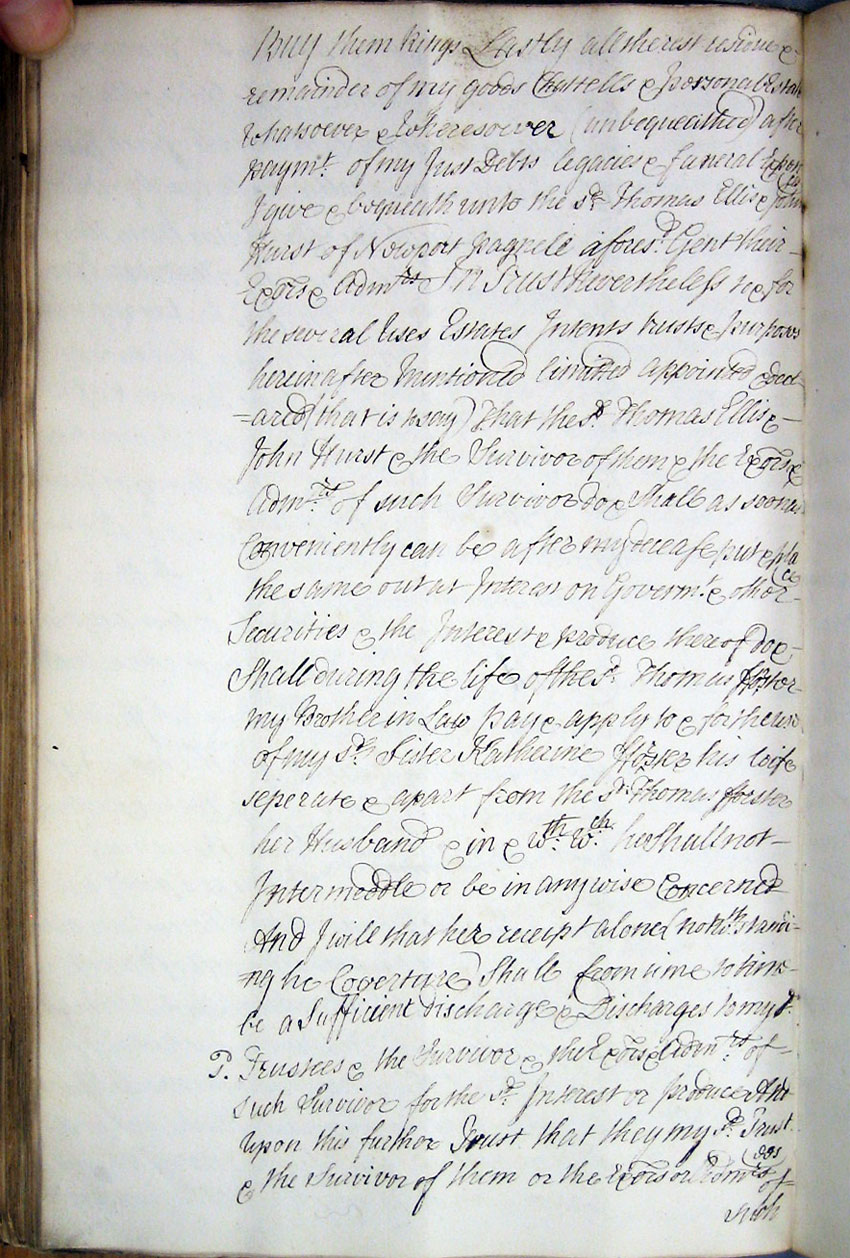 Buy them Rings Lastly all the rest residue &
remainder of my goods Chattells & personal Estate
whatsoever & wheresoever (unbequeathed) after
paymt. of my Just Debts legacies & funeral Expences
I give & bequeath unto the sd. Thomas Ellis & John
Hurst of Newport pagnell aforesd. Gent their
Exors & Admrs In Trust Nevertheless to & for
the several Uses Estates Intents trusts & purposes
herein after Mentioned limitted appointed & decl
=ared (that is to say) That the sd. Thomas Ellis &
John Hurst & the Survivor of them & the Exors &
Admrs. of such Survivor do & shall as soon as
Conveniently can be after my decease put & place
the same out at Interest on Governmt. & other
Securities & the Interest & produce thereof do &
Shall during the life of the sd. Thomas ffoster
my Brother in Law pay & apply to & for the use
of my sd. Sister Katherine ffoster his wife
seperate & apart from the sd. Thomas fforster
her Husband & in & wth. wch. he Shall not
Intermeddle or be in any wise Concerned
And I will that her receipt alone (notwthstandi-
=ng he Coverture) Shall from time to time
be a Sufficient discharge & Discharges to my sd.
P. Trustees & the Survivor & the Exors & Admrs of
such Survivor for the sd. Interest or produce And
Upon this further Trust that they my sd. Trustees
& the Survivor of them or the Exors or Admrs of
such